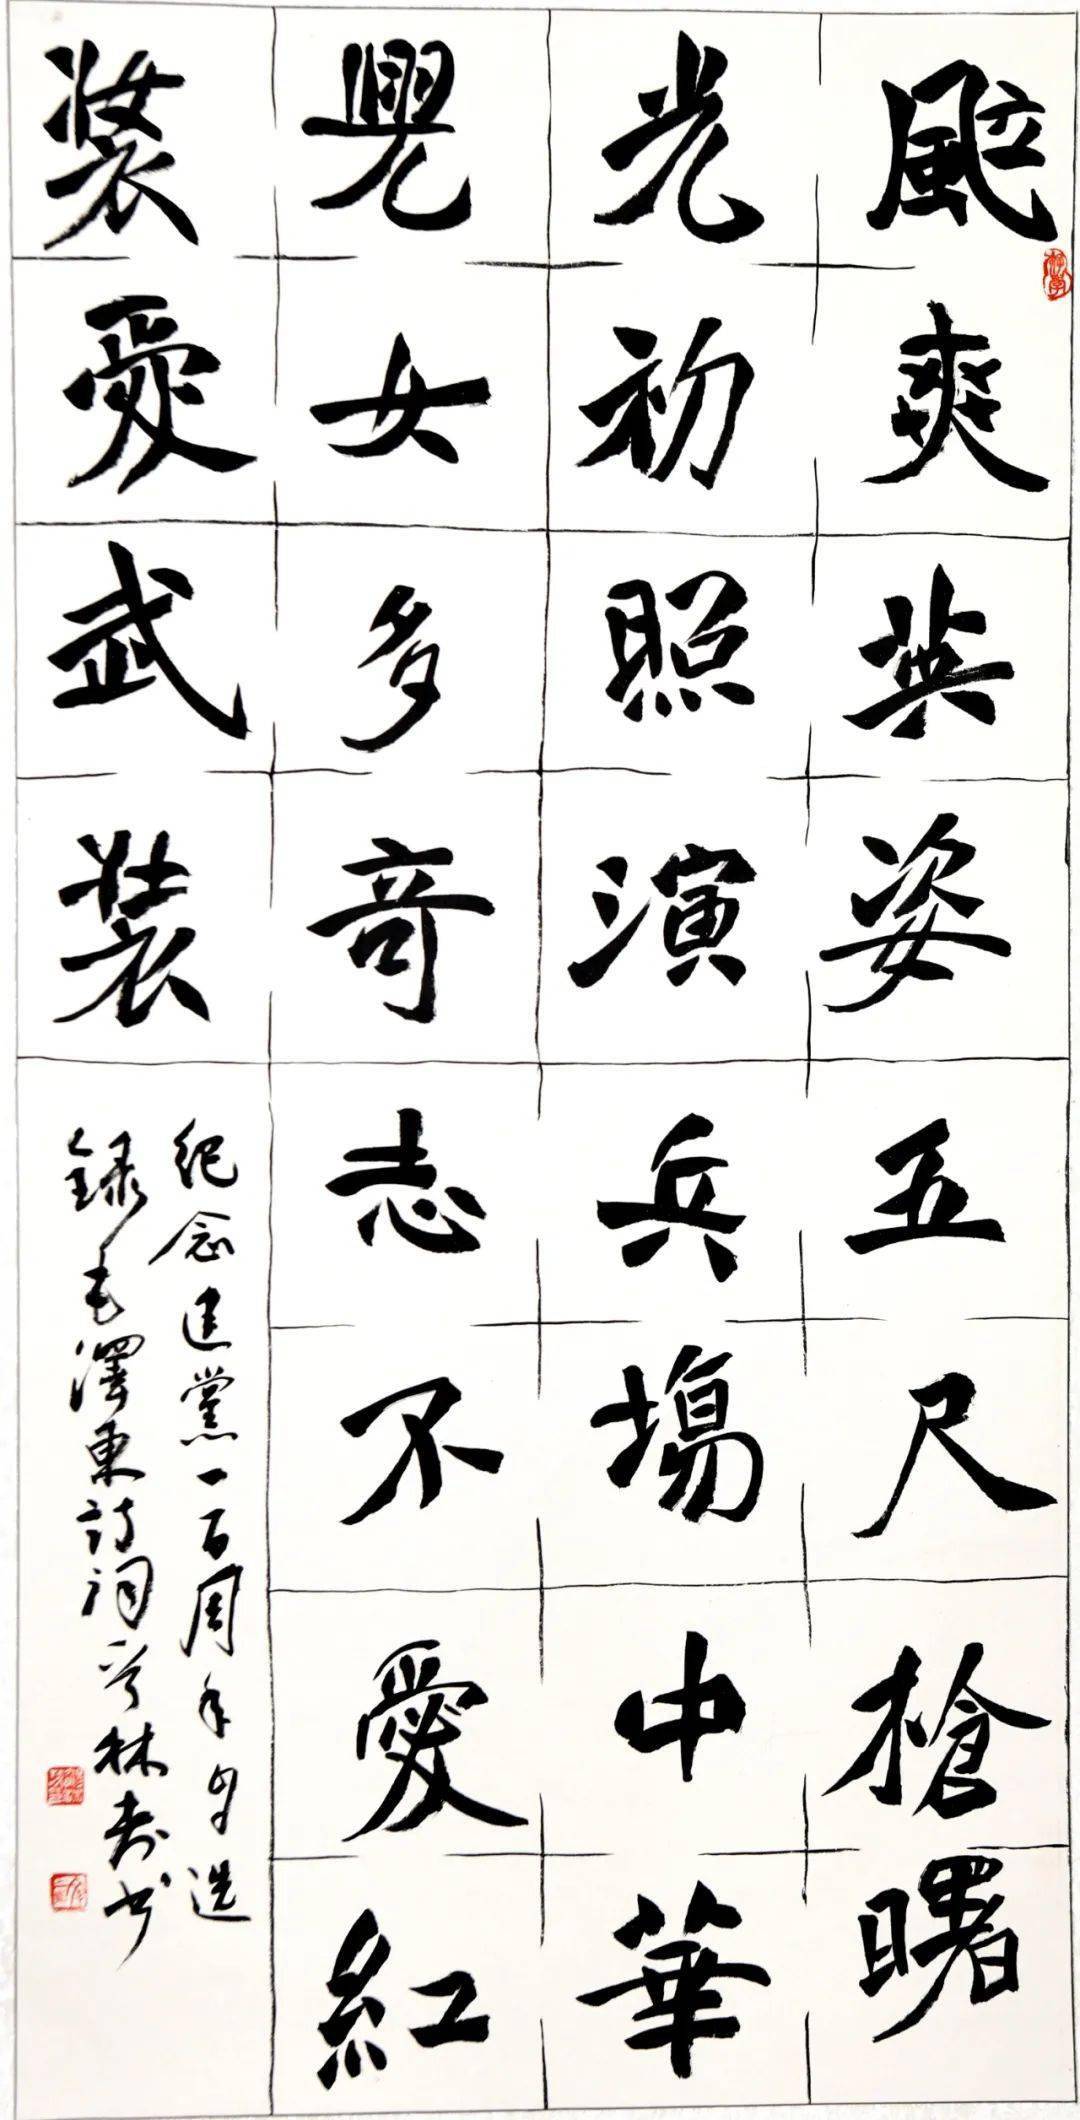 颯爽英姿五尺槍曙
光初照演兵場中華
兒女多奇志不愛紅
娤愛武裝
紀念建黨一百周年選
録毛澤東詩詞林書